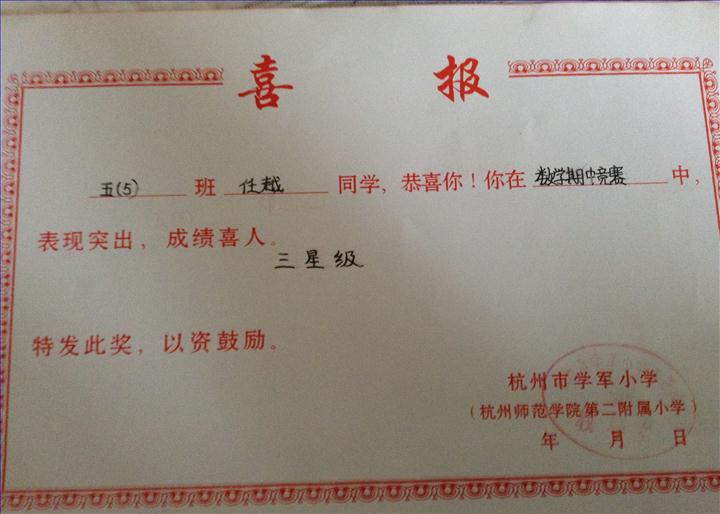 喜报
五(5)班任越同学，恭喜你！你在数学期中竞赛中，
表现突出，成绩喜人。
三星级
特发此奖，以资鼓励。
杭州市学军小学
（杭州师范学院第二附属小学）
年月日